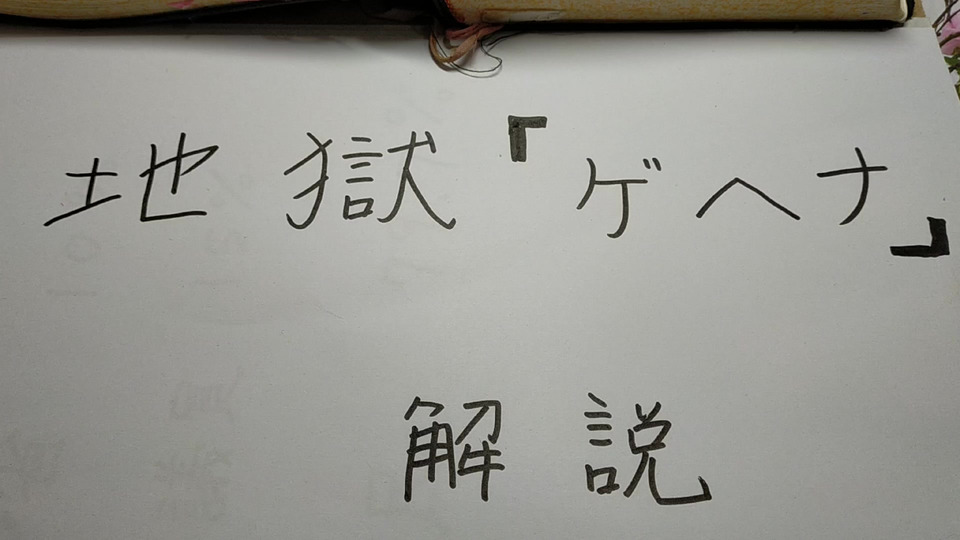 地獄「ゲヘナ」
解説